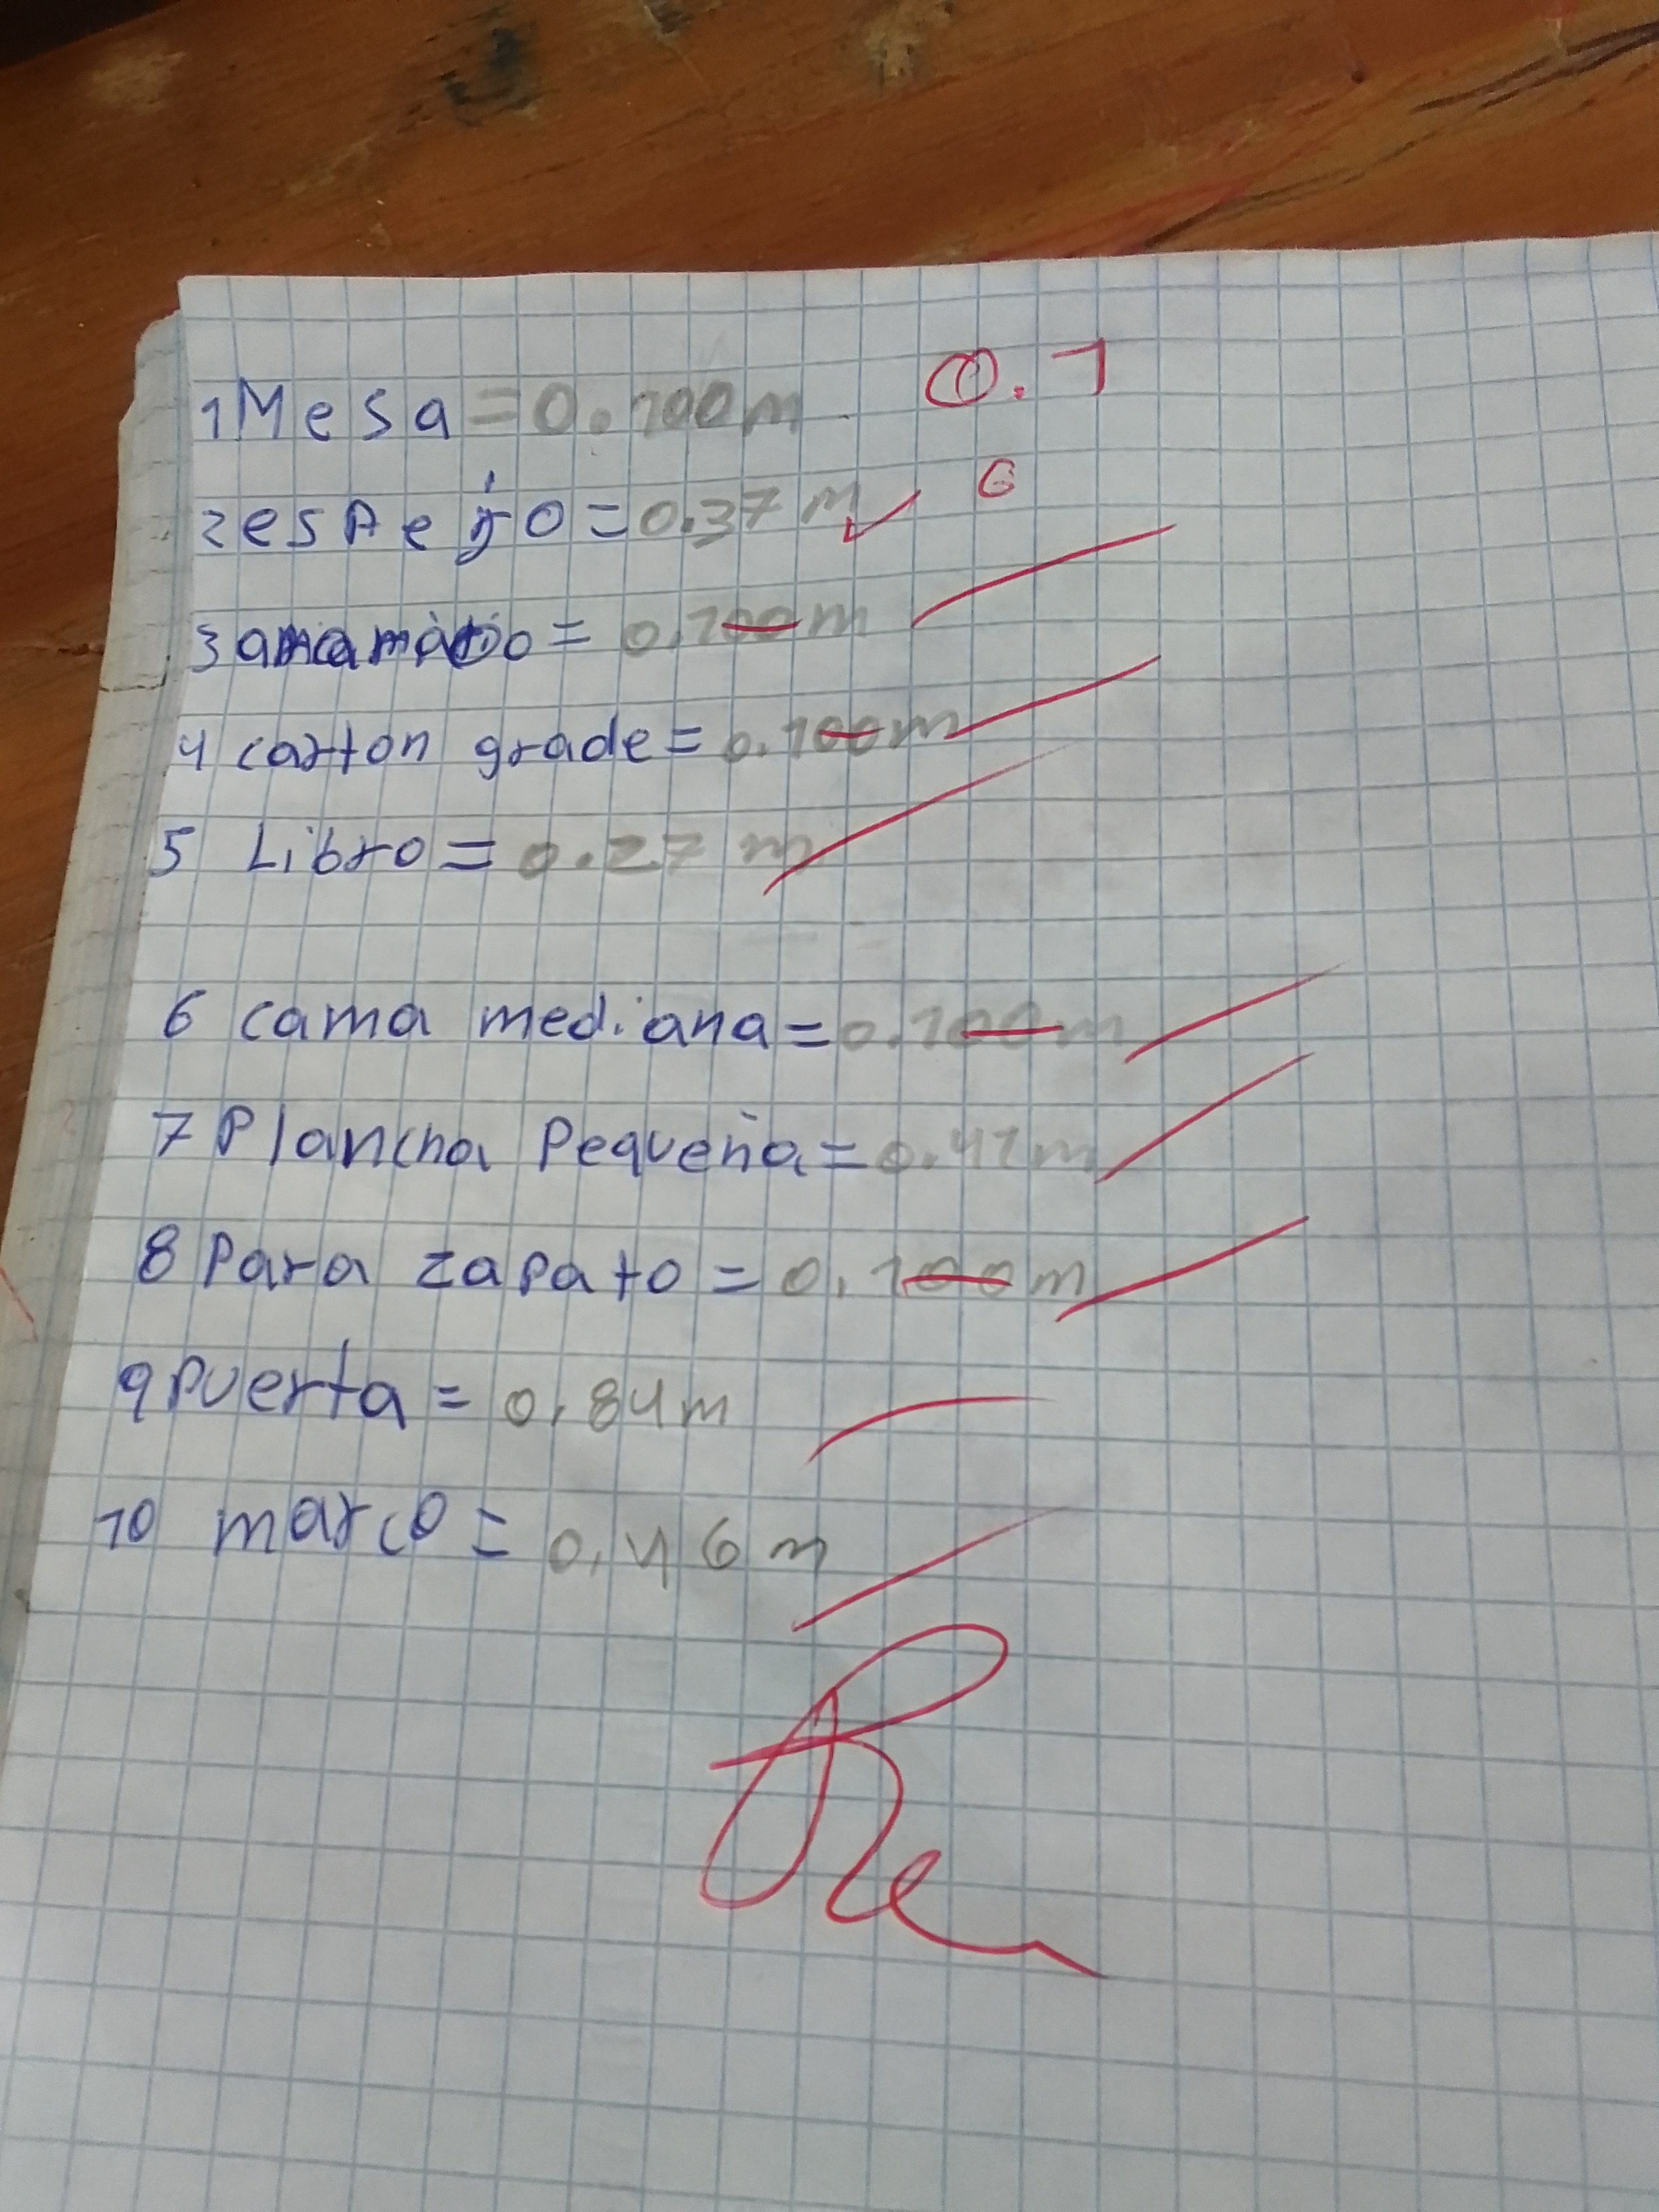 1 Mesa = 0.100 m 0.1
2 espejo = 0.37 m 6
3 = 0.100 m
4 carton grade = 0.100 m
5 Libro = 0.27 m
6 cama mediana = 0.100 m
7 Plancha Pequeña = 0.41 m
8 Para zapato = 0.100 m
9 Puerta = 0.84 m
10 marco = 0.46 m